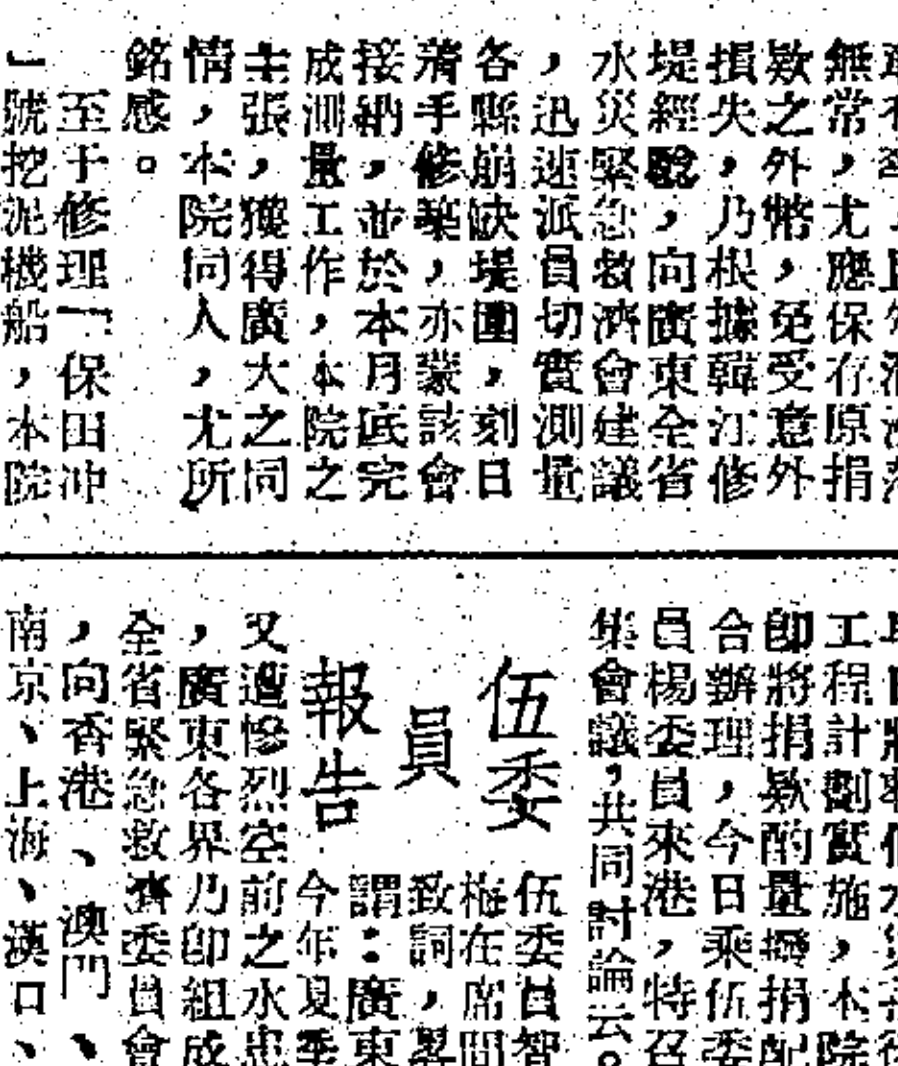 無常，尤應保存原捐
欵之外幣，免受意外
損失，乃根據韓江修
堤經驗，向廣東全省
水災緊急救濟會建議
，迅速派員切實測量
各縣崩缺堤圍，刻日
著手修築，亦蒙該會
接納，並於本月底完
成測量工作，本院之
主張，獲得廣大之同
情，本院同人，尤所
銘感。
至于修理「保田冲
」號挖泥機船，本院
工程計劃實施，本院
卽將捐欵酌量撥捐配
合辦理，今日乘伍委
員楊委員來港，特召
集會議，共同討論云。
伍委
員
報告
伍委員智
梅在席間
致詞，畧
謂：廣東
今年夏季
又遭慘烈空前之水患
，廣東各界乃卽組成
全省緊急救濟委員會
，向香港、澳門、
南京、上海、漢口、